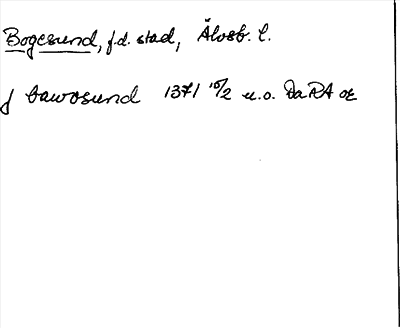 Bogesund, f.d. stad, Älvsb. l.
j bawosund 1371 10/2 u.o. DaRA or